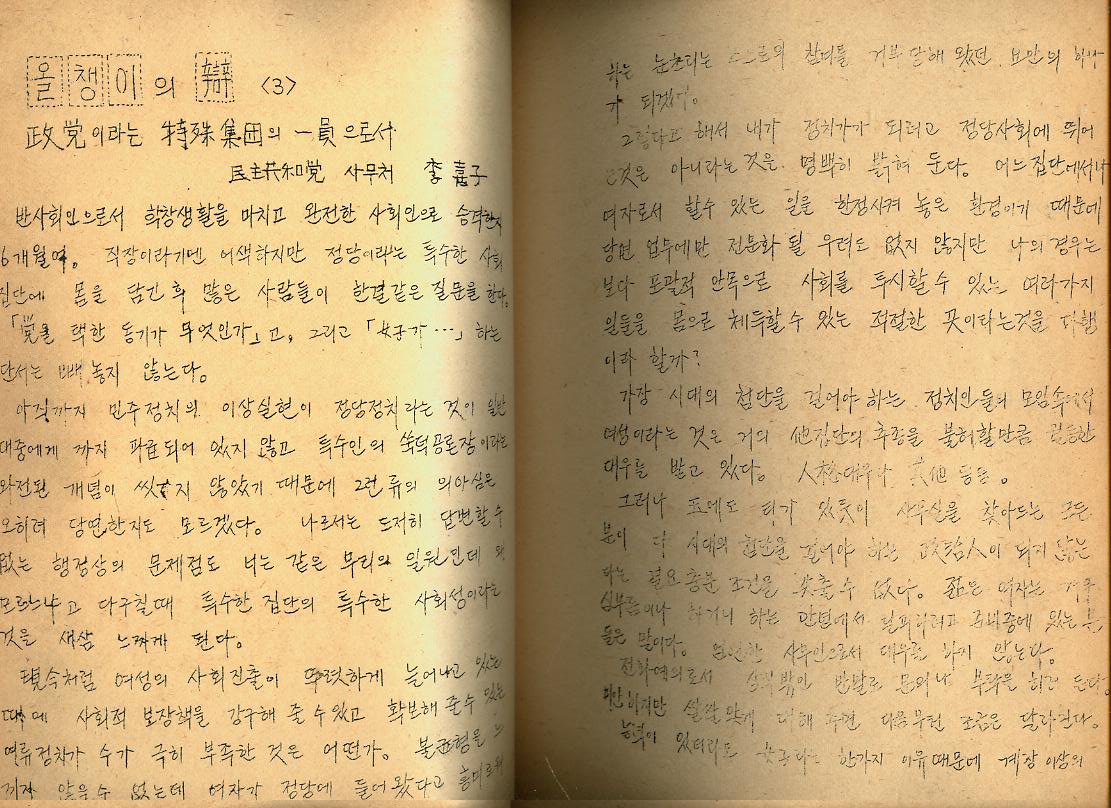 올챙이의 辯 <3>
政党이라는 特殊集団의 一員으로서
民主共和党 사무처 李嘉子
반사회인으로서 학창생활을 마치고 완전한 사회인으로
6개월여。 직장이라기엔 어색하지만 정당이라는 특수한 사회
집단에 몸을 담긴 후 많은 사람들이 한결같은 질문을 한다。
「党을 택한 동기가 무엇인가」고, 그리고 「女子가…」하는
단서는 빼놓지 않는다。
아직까지 민주정치의 이상실현이 정당정치라는 것이 일반
대중에게 까지 파급되어 있지 않고 특수인의 쑥덕공론장이라는
와전된 개념이 씻기지 않았기 때문에 그런 류의 의아심은
오히려 당연한지도 모르겠다。 나로서는 도저히 답변할 수
없는 행정상의 문제점도 너는 같은 무리의 일원인데 왜
모르느냐고 다구칠때 특수한 집단의 특수한 사회성이라는
것을 새삼 느끼게 된다。
현속처럼 여성의 사회진출이 뚜렷하게 늘어나고 있는
때에 사회적 보장책을 강구해 줄 수 있고 확보해 줄 수 있는
여류정치가 수가 극히 부족한 것은 어떤가。 불균형을 느
끼지 않을 수 없는데 여자가 정당에 들어왔다고 흥미로워
하는 눈초리는 스스로의 참여를 거부 당해 왔던 요인의 하나
가 되겠지。
그렇다고 해서 내가 정치가가 되려고 정당사회에 뛰어
든것은 아니라는 것은 명백히 밝혀 둔다。 어느집단에서나
여자로서 할수 있는 일을 한정시켜 놓은 환경이기 때문에
당면 업무에만 전문화 될 우려도 없지 않지만 나의 경우는
보다 포괄적 안목으로 사회를 투시할 수 있는 여러가지
일들을 몸으로 체득할 수 있는 적절한 곳이라는것을 다행
이라 할까?
가장 시대의 첨단을 걸어야 하는 정치인들의 모임속에서
여성이라는 것은 거의 他집단의 추종을 불허할만큼 월등한
대우를 받고 있다。 人格대우나 其他 등등。
그러나 옥에도 티가 있듯이 사무실을 찾아드는 모든
분이 다 시대의 첨단을 걸어야 하는 政治人이 되지 않는
다는 필요 충분 조건을 갖출 수 없다。 젊은 여자는
심부름이나 하거니 하는 만면에서
들은 말이다。 엄연한 사무인으로서 대우를 하지 않는다。
전화예의로서 상식 밖인 반말로 문의나 부탁을 하곤 든다。
실감 맞게 대해 주면 다음부턴 조금은 달라진다。
능력이 있더라도 한가지 이유때문에 계장 이상의